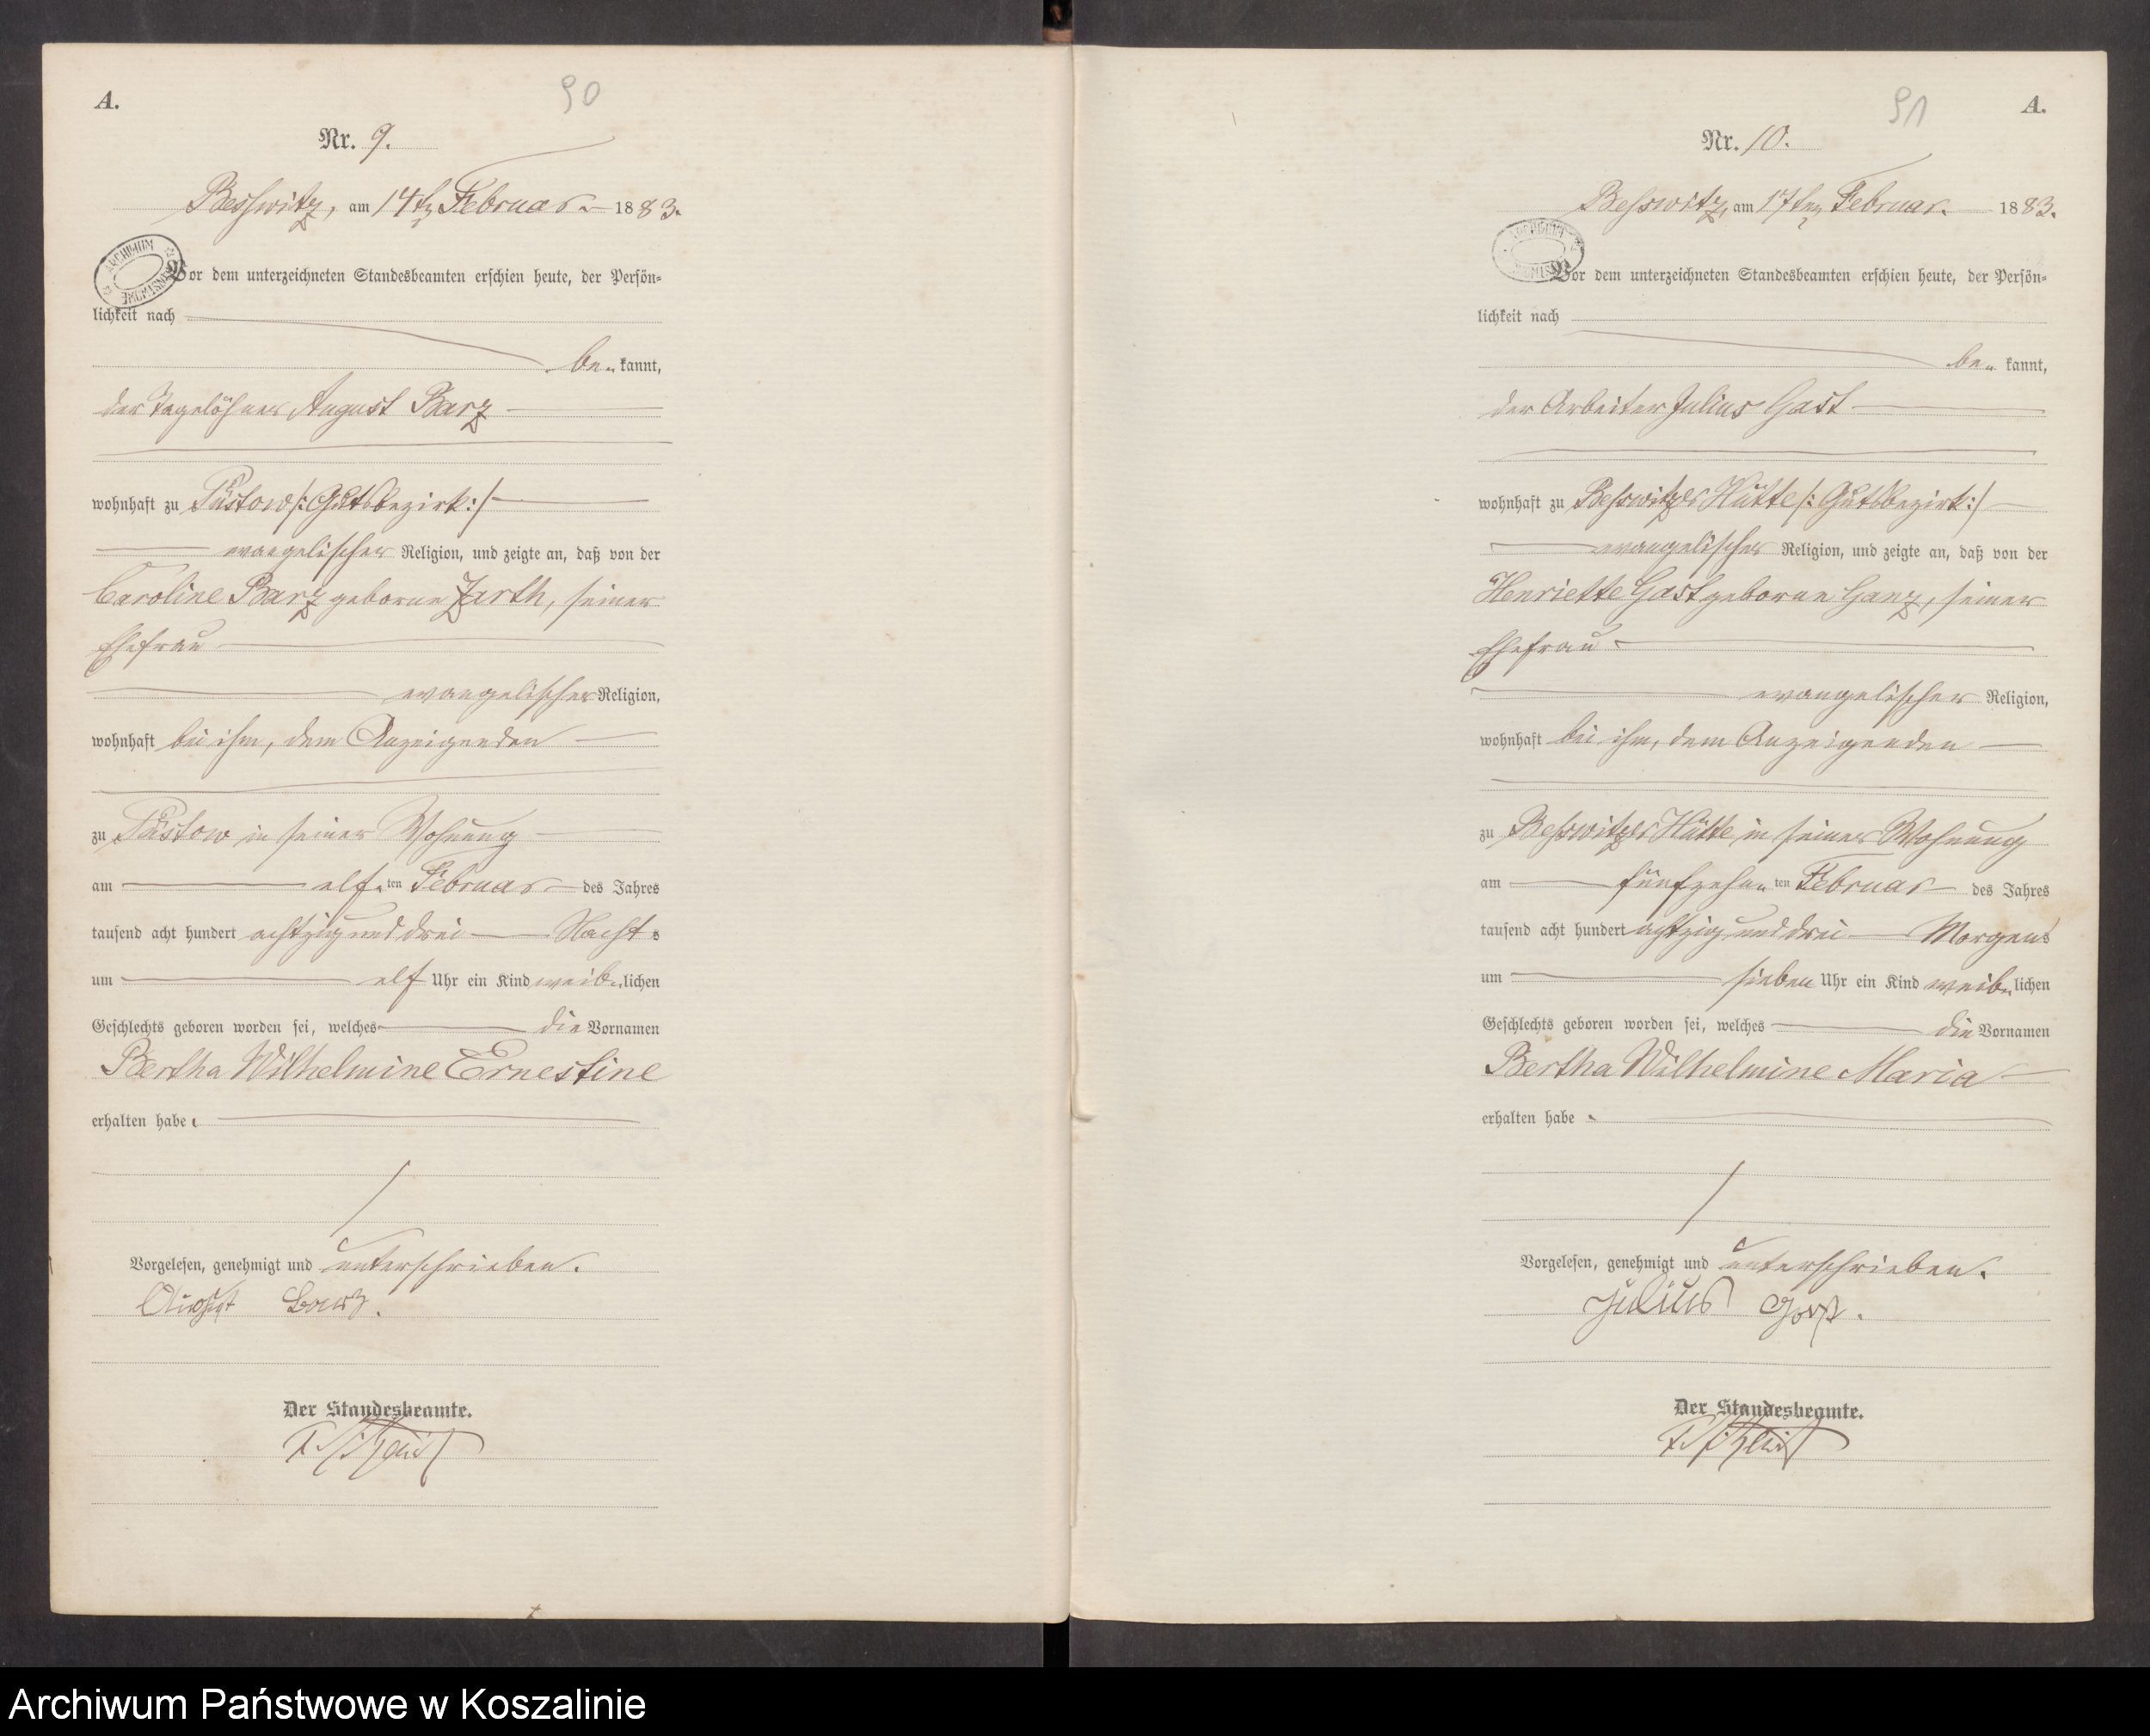 A.
90
Nr. 9.
Besswitz, am 14ten Februar 1883.
ARCHIWUM
Vor dem unterzeichneten Standesbeamten erschien heute, der Persön=
lichkeit nach
be= kannt,
der Tagelöhner August Barz
wohnhaft zu Püstow /: Gutsbezirk :/
evangelischer Religion, und zeigte an, daß von der
Caroline Barz geborne Zarth, seiner
Ehefrau
evangelischer Religion,
wohnhaft bei ihm, dem Anzeigenden
zu Püstow in seiner Wohnung
am elf= ten Februar des Jahres
tausend acht hundert achtzig und drei Nachts
um elf Uhr ein Kind weib= lichen
Geschlechts geboren worden sei, welches die Vornamen
Bertha Wilhelmine Ernestine
erhalten habe.
Vorgelesen, genehmigt und unterschrieben.
August Barz.
Der Standesbeamte.
91
A.
Nr. 10.
Besswitz, am 17ten Februar. 1883.
ARCHIWUM
Vor dem unterzeichneten Standesbeamten erschien heute, der Persön=
lichkeit nach
be= kannt,
der Arbeiter Julius Gast
wohnhaft zu Besswitzer Hütte /: Gutsbezirk :/
evangelischer Religion, und zeigte an, daß von der
Henriette Gast geborne Ganz, seiner
Ehefrau
evangelischer Religion,
wohnhaft bei ihm, dem Anzeigenden
zu Besswitzer Hütte in seiner Wohnung
am fünfzehn ten Februar des Jahres
tausend acht hundert achtzig und drei Morgens
um sieben Uhr ein Kind weib= lichen
Geschlechts geboren worden sei, welches die Vornamen
Bertha Wilhelmine Maria
erhalten habe.
Vorgelesen, genehmigt und unterschrieben.
Julius Gast.
Der Standesbeamte.
Archiwum Państwowe w Koszalinie